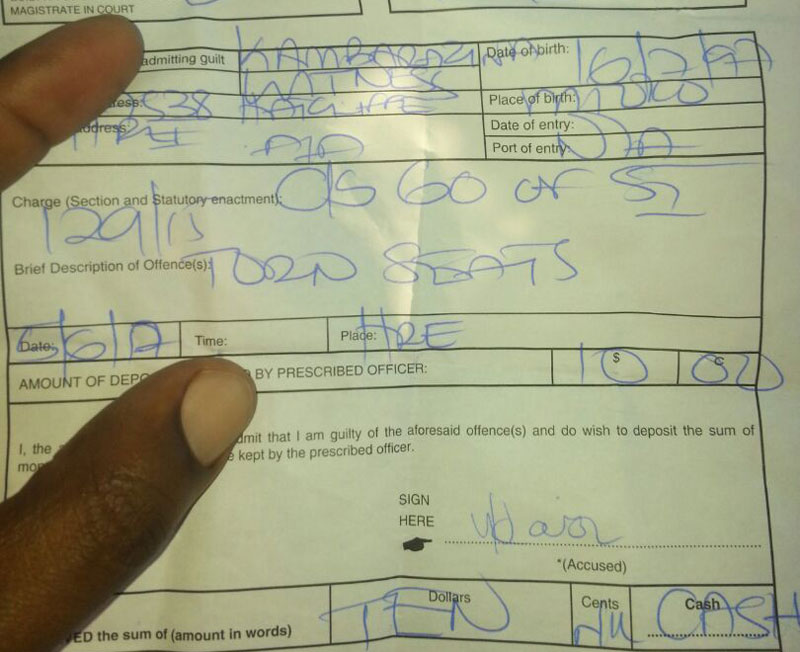 MAGISTRATE IN COURT
admitting guilt KAMBARAZI
Date of birth: 16/7/97
Place of birth:
ress: 9538 HATCLIFFE
Date of entry:
ddress: HRE
Port of entry: N/A
Charge (Section and Statutory enactment): C/S 60 OF SI
129/15
Brief Description of Offence(s): TORN SEATS
Date: 5/6/17 Time: Place: HRE
AMOUNT OF DEPO BY PRESCRIBED OFFICER: $ 10 C 00
I, the dmit that I am guilty of the aforesaid offence(s) and do wish to deposit the sum of
mon e kept by the prescribed officer.
SIGN
HERE
*(Accused)
ED the sum of (amount in words) TEN Dollars Cents Nil Cash CASH